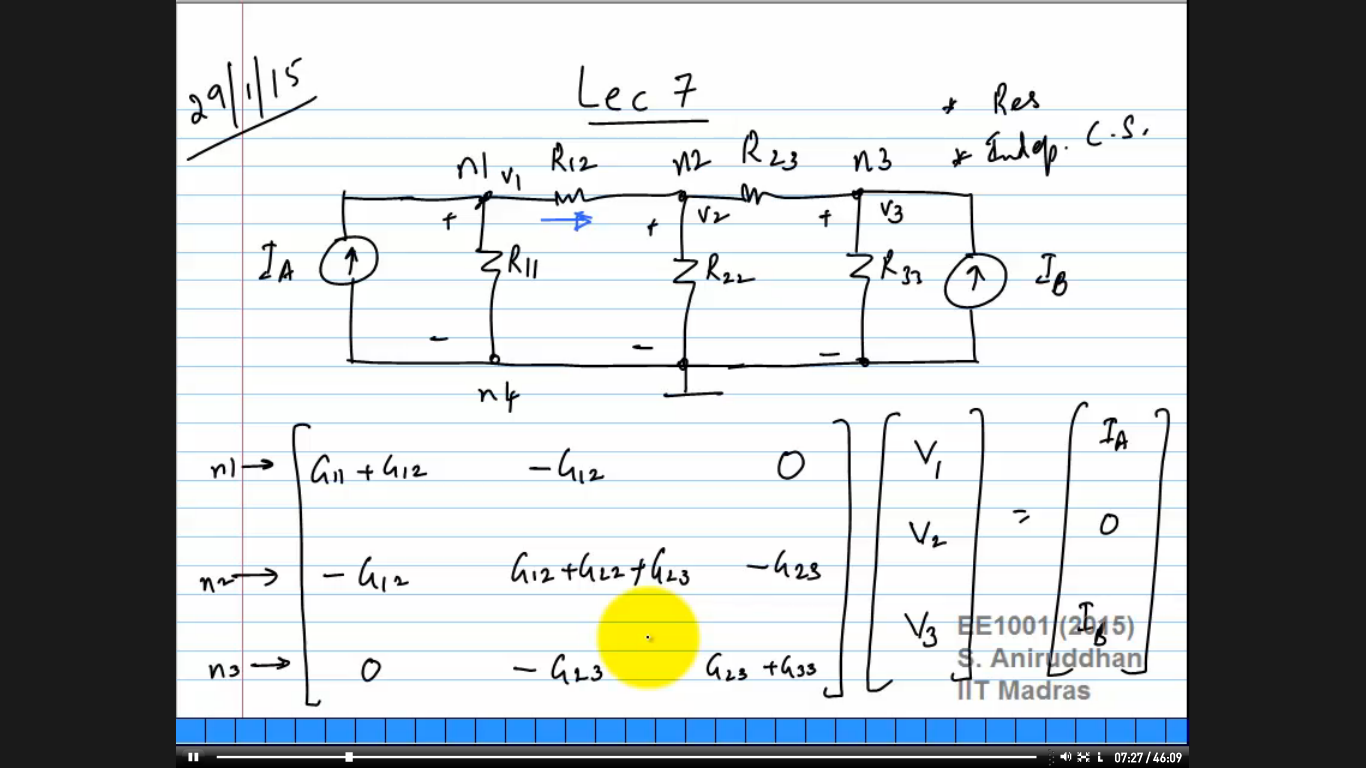 29/1/15
Lec 7
* Res
* Indep. C.S.
n1 V1 R12 n2 R23 n3
+ + V2 + V3
IA R11 R22 R33 IB
- - -
n4
n1 → G11 + G12 -G12 0 V1 = IA
n2 → -G12 G12 + G22 + G23 -G23 V2 0
n3 → 0 -G23 G23 + G33 V3 IB
EE1001 (2015)
S. Aniruddhan
IIT Madras
07:27 / 46:09